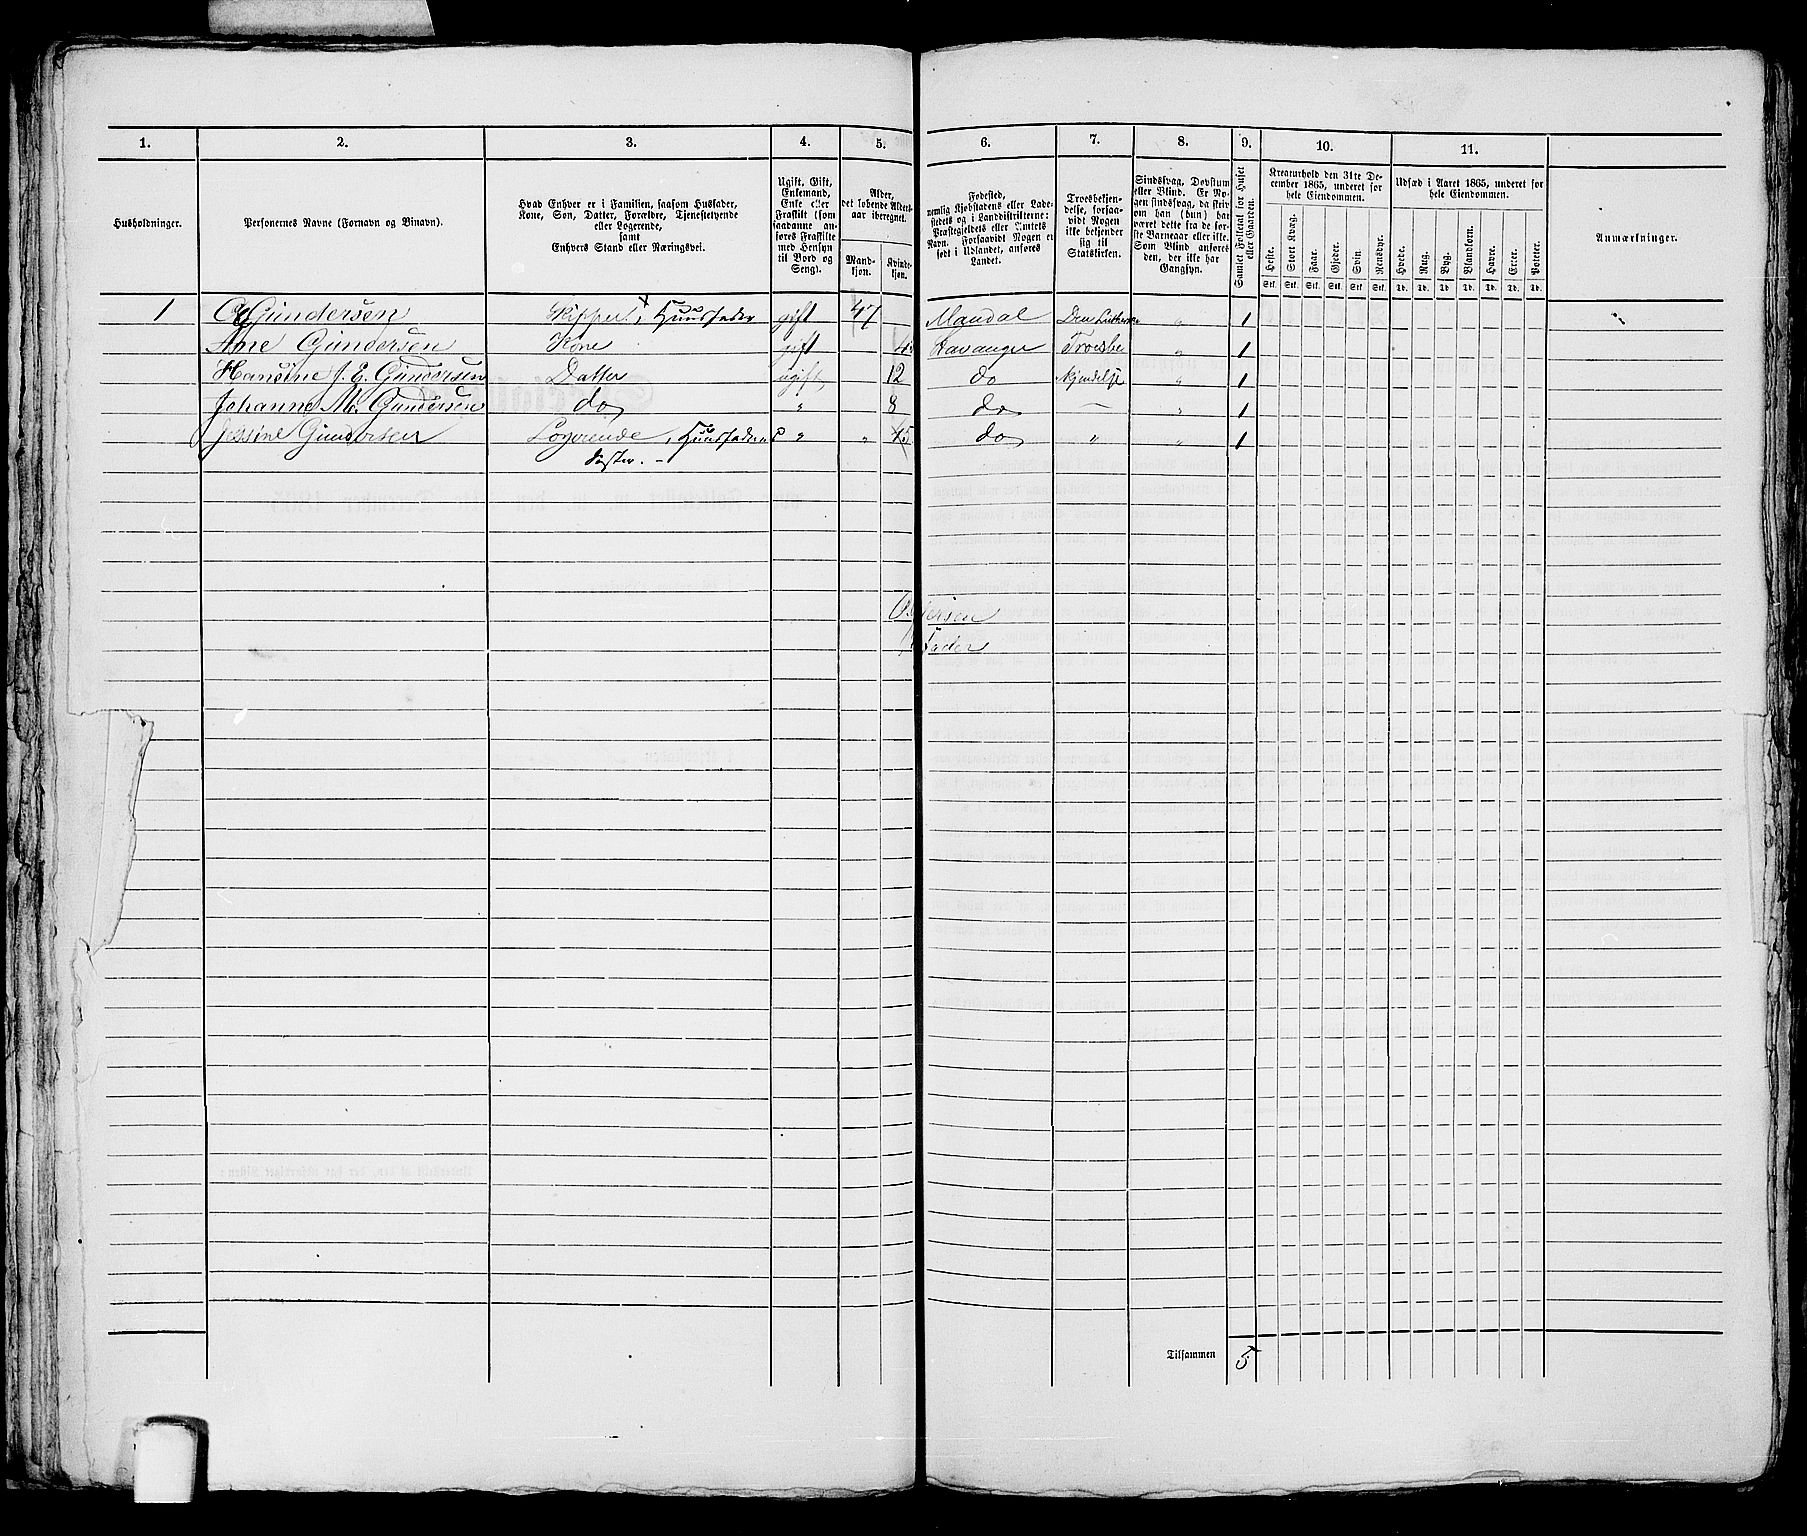 1. 2. 3. 4. 5. 6. 7. 8. 9. 10. 11.
Husholdninger.
Personernes Navne (Fornavn og Binavn).
Hvad Enhver er i Familien, saasom Husfader,
Kone, Søn, Datter, Forældre, Tjenestetyende
eller Logerende,
samt
Enhvers Stand eller Næringsvei.
Ugift, Gift,
Enkemand,
Enke eller
Fraskilt (som
saadanne an-
føres Fraskilte
med Hensyn
til Bord og
Seng).
Alder,
det løbende Alders-
aar iberegnet.
Mand-
kjøn.
Kvinde-
kjøn.
Fødested,
nemlig Kjøbstadens eller Lade-
stedets og i Landdistrikterne:
Præstegjeldets eller Amtets
Navn. Forsaavidt Nogen er
født i Udlandet, anføres
Landet.
Troesbekjen-
delse, forsaa-
vidt Nogen
ikke bekjender
sig til
Statskirken.
Sindssvag, Døvstum
eller Blind. Er No-
gen sindssvag, da skriv
om han (hun) har
været dette fra de før-
ste Barneaar eller ikke.
Som Blind anføres
den, der ikke har
Gangsyn.
Samlet Folketal for Huset
eller Gaarden.
Kreaturhold den 31te De-
cember 1865, underet for
hele Eiendommen.
Heste. Stort Kvæg. Faar. Gjeder. Svin. Rensdyr.
Stk. Stk. Stk. Stk. Stk. Stk.
Udsæd i Aaret 1865, underet for
hele Eiendommen.
Hvede. Rug. Byg. Blandkorn. Havre. Erter. Poteter.
Td. Td. Td. Td. Td. Td. Td.
Anmærkninger.
1 Gundersen Skipper, Huusfader gift 47 Mandal Den Lutherske 1
Ane Gundersen Kone gift Stavanger Troesbe „ 1
Hansine J. E. Gundersen Datter ugift 12 do kjendelse „ 1
Johanne M. Gundersen do „ 8 do – „ 1
Jessine Gundersen Logerende, Huusfaderns „ „ 45 do „ „ 1
Søster. –
Tilsammen 5